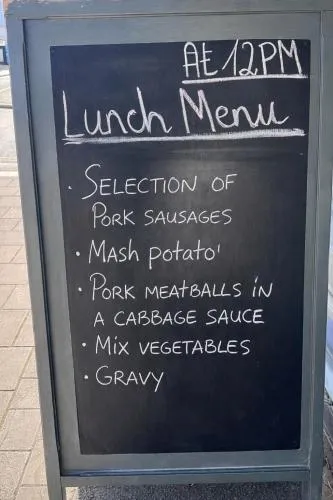 At 12PM
Lunch Menu
· SELECTION OF
PORK SAUSAGES
· Mash potato'
· PORK MEATBALLS IN
A CABBAGE SAUCE
· MIX VEGETABLES
· GRAVY